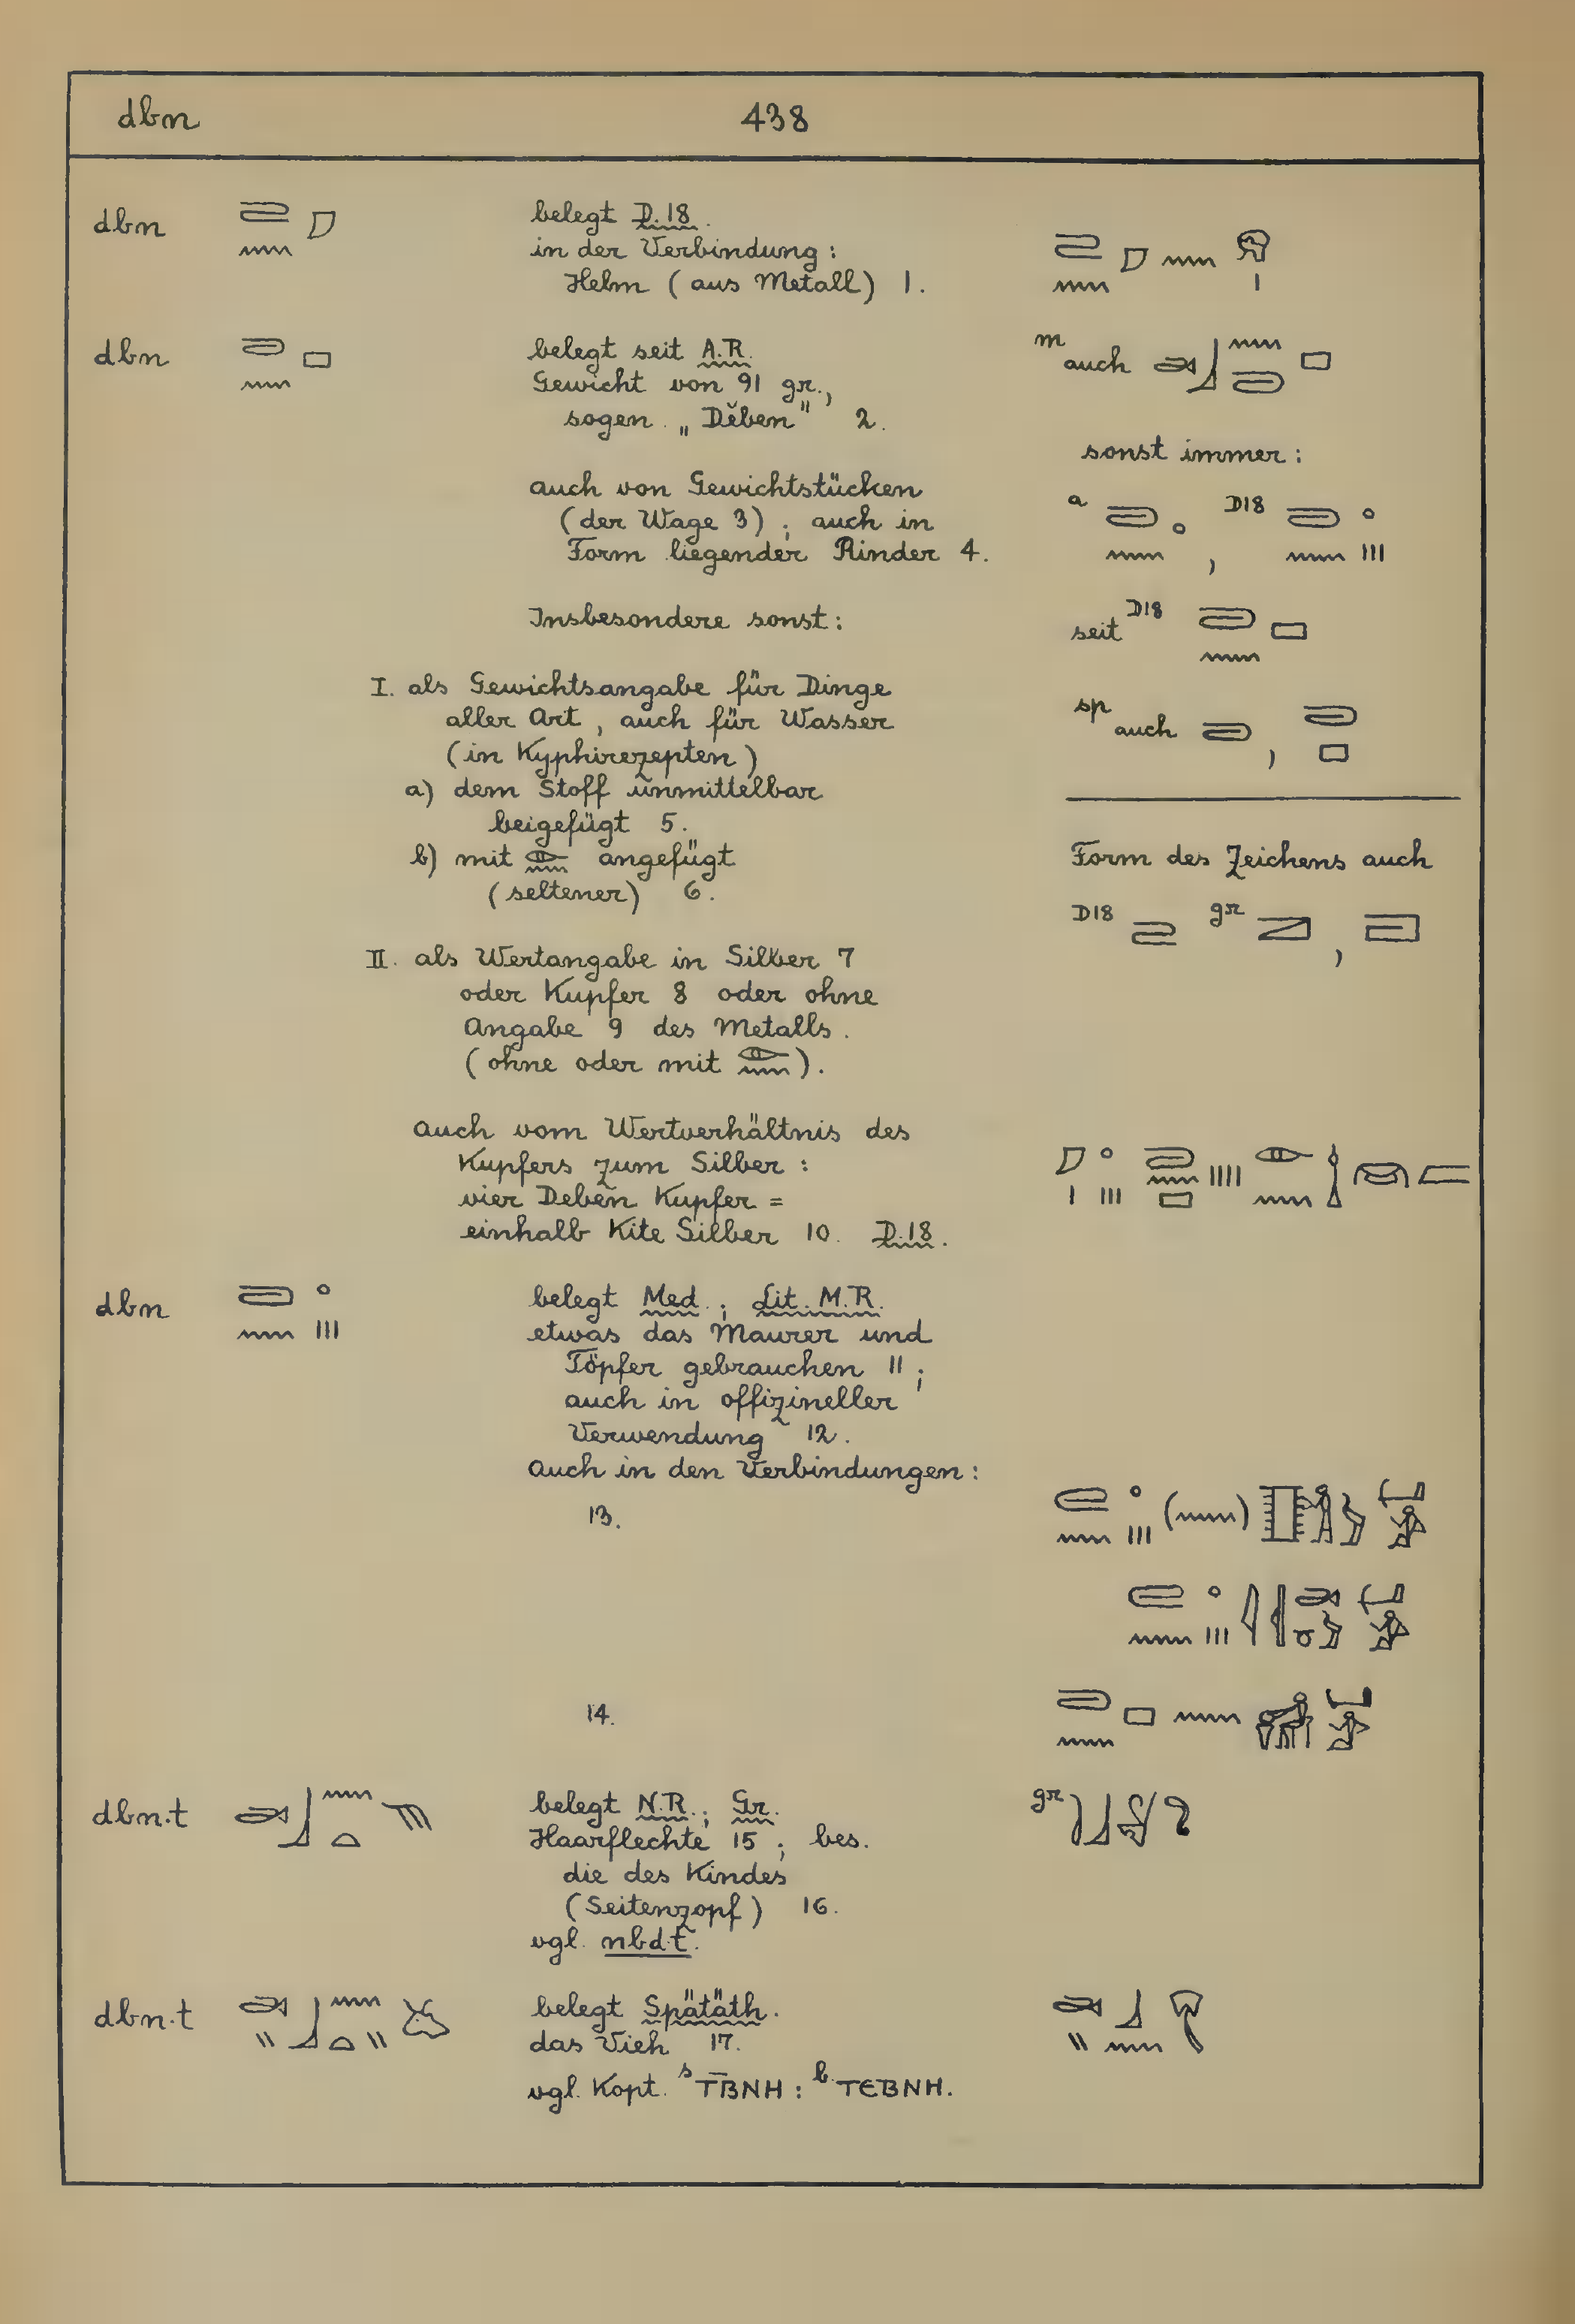 dbn 438
dbn belegt D.18.
in der Verbindung:
Helm (aus Metall) 1.
dbn belegt seit A.R.
Gewicht von 91 gr.,
sogen. „Dĕben" 2.
m auch
sonst immer:
auch von Gewichtstücken
(der Wage 3); auch in
Form liegender Rinder 4.
a , D18
Insbesondere sonst:
seit D18
I. als Gewichtsangabe für Dinge
aller Art, auch für Wasser
(in Kyphirezepten)
sp auch ,
a) dem Stoff unmittelbar
beigefügt 5.
b) mit angefügt
(seltener) 6.
Form des Zeichens auch
D18 gr ,
II. als Wertangabe in Silber 7
oder Kupfer 8 oder ohne
Angabe 9 des Metalls.
(ohne oder mit ).
auch vom Wertverhältnis des
Kupfers zum Silber:
vier Deben Kupfer =
einhalb Kite Silber 10. D.18.
dbn belegt Med.; Lit. M.R.
etwas das Maurer und
Töpfer gebrauchen 11;
auch in offizineller
Verwendung 12.
auch in den Verbindungen:
13.
14.
dbn.t belegt N.R.; Gr.
gr
Haarflechte 15; bes.
die des Kindes
(Seitenzopf) 16.
vgl. nbd.t.
dbn.t belegt Spätäth.
das Vieh 17.
vgl. Kopt. s T̅BNH: b. TEBNH.